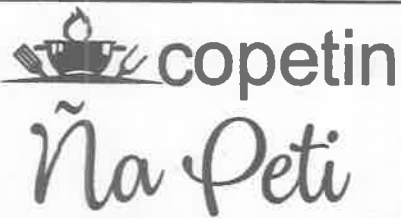 copetin
Ña Peti